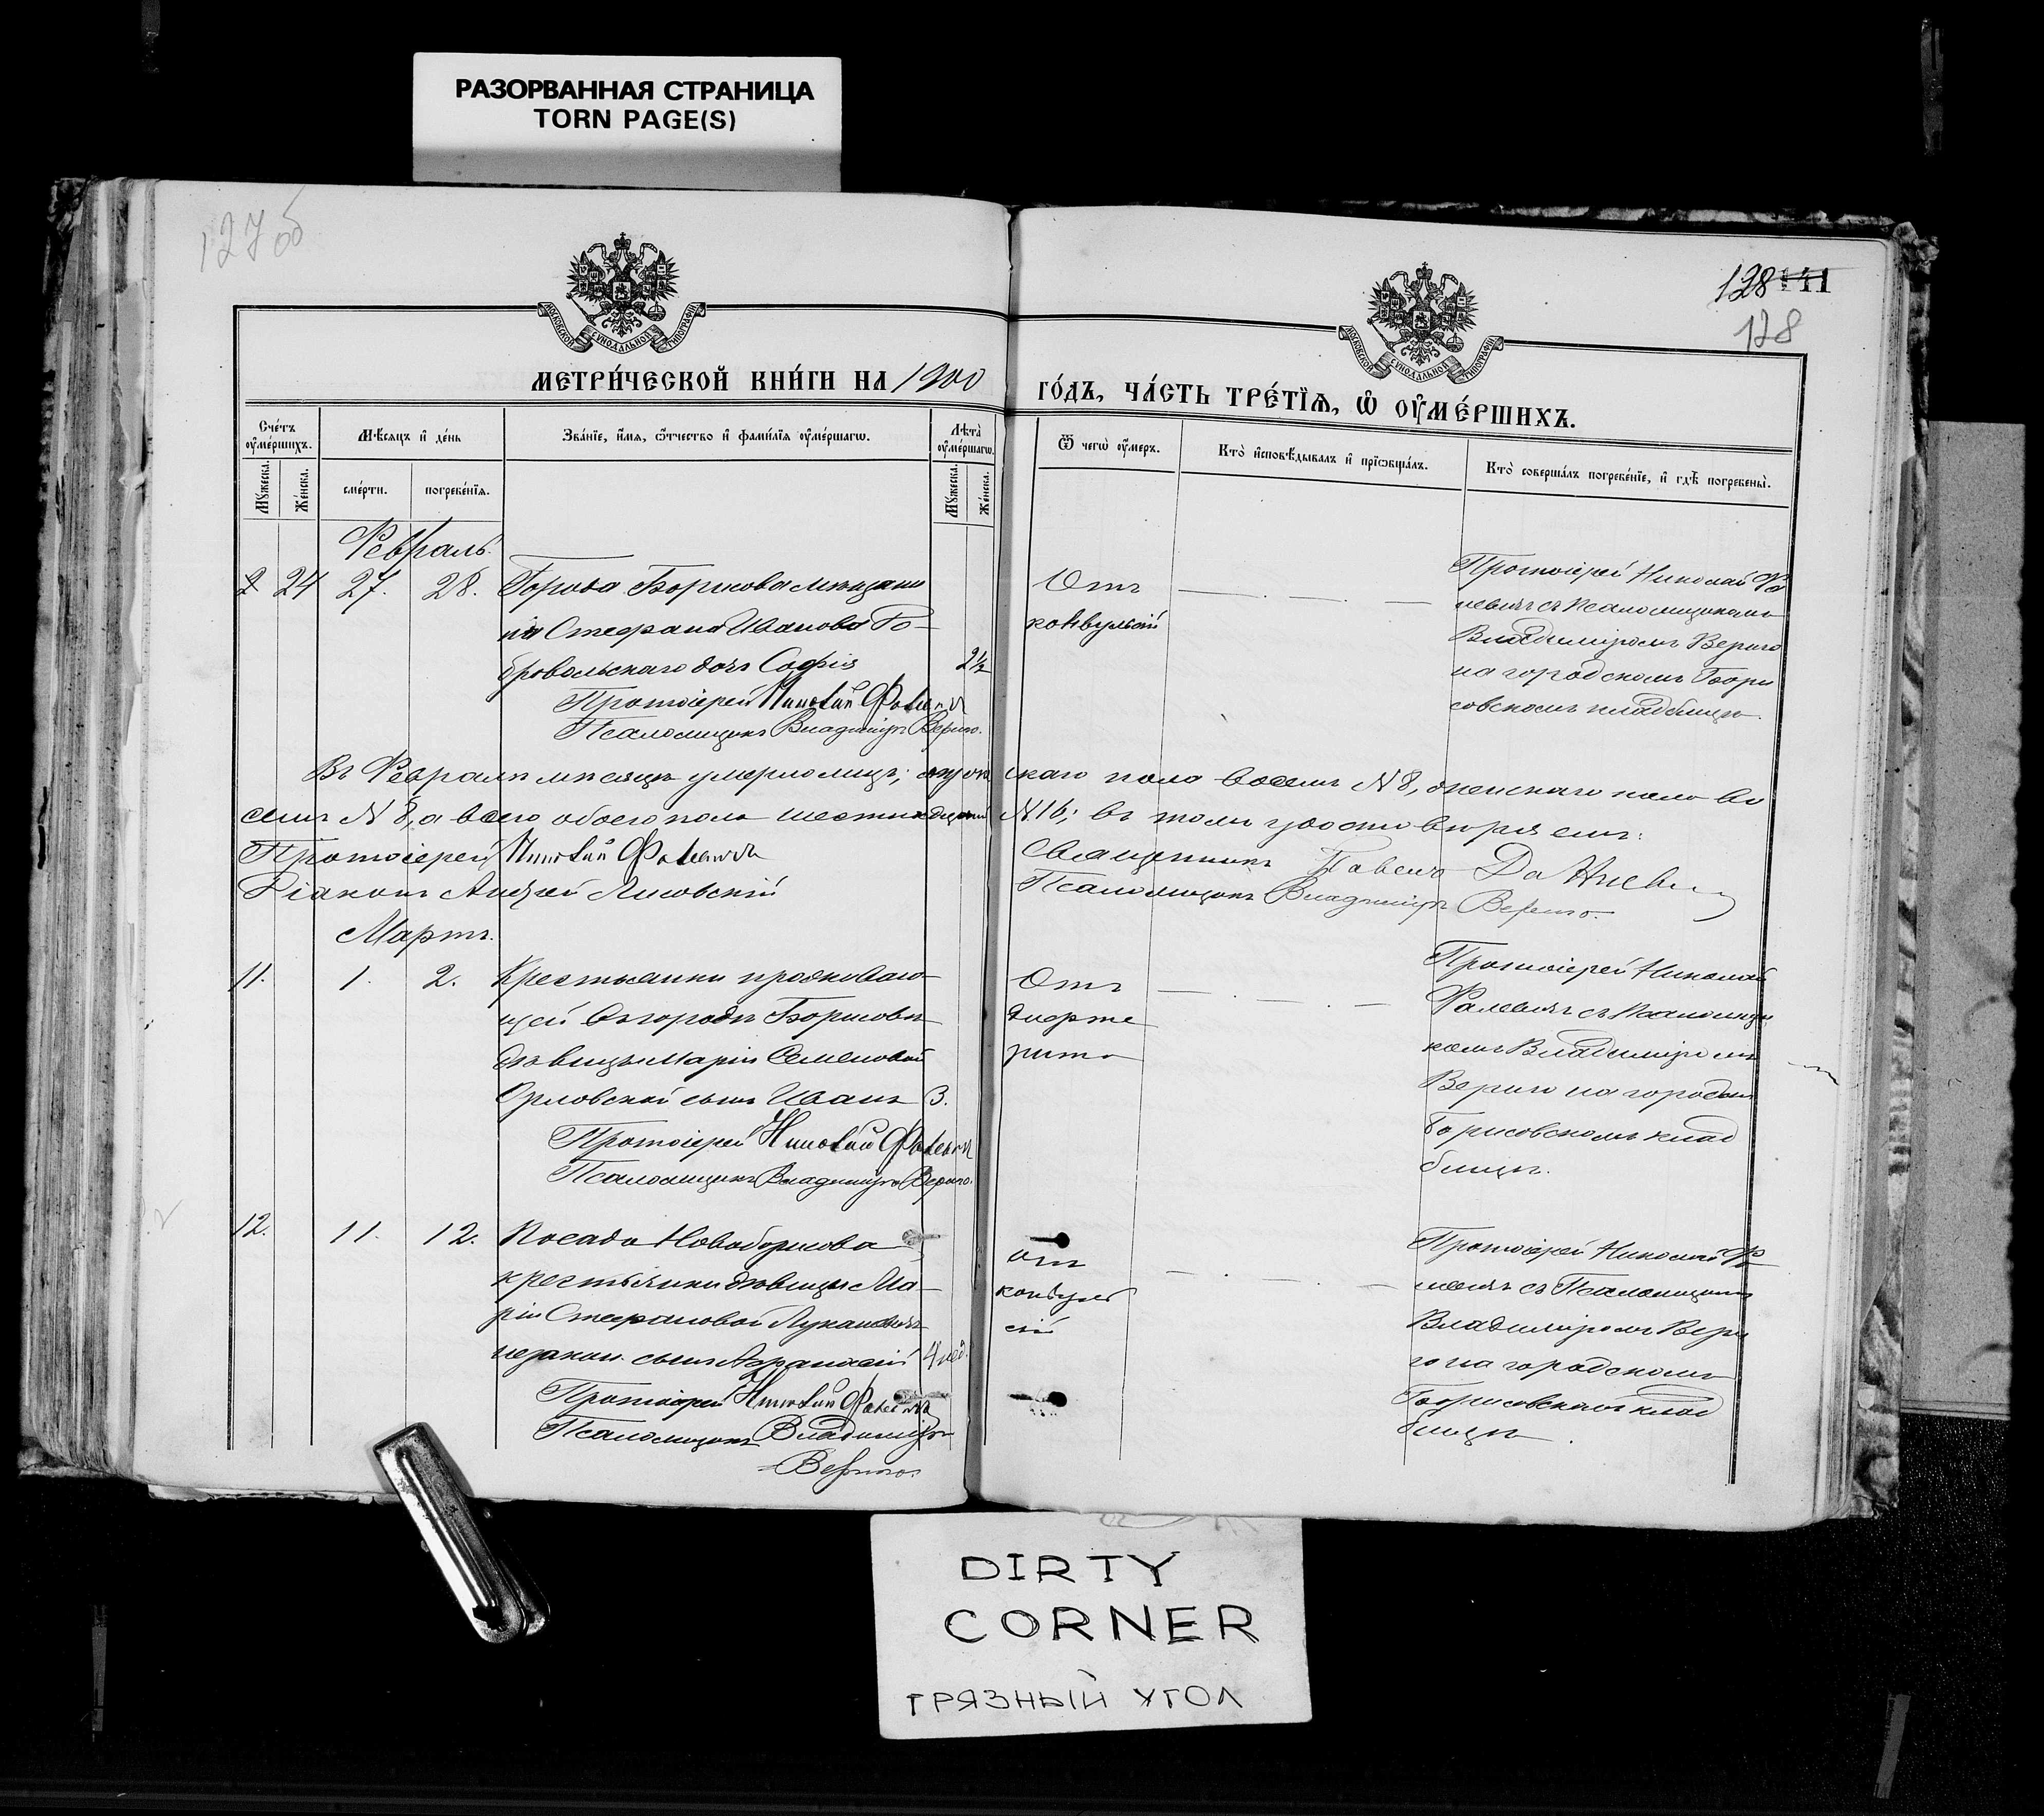 РАЗОРВАННАЯ СТРАНИЦА
TORN PAGE(S)
127об
128 141
128
МОСКОВСКОЙ СѴНОДАЛЬНОЙ ТИПОГРАФІИ
МОСКОВСКОЙ СѴНОДАЛЬНОЙ ТИПОГРАФІИ
МЕТРИ́ЧЕСКОЙ КНИ́ГИ НА 1900
ГО́ДЪ, ЧА́СТЬ ТРЕ́ТЇѦ, Ѽ ОУ҆МЕ́РШИХЪ.
Сче́тъ оу҆ме́ршихъ.
Мꙋжеска.
Же́нска.
Мѣ́сѧцъ и҆ де́нь
сме́рти.
погребе́нїѧ.
Зва́нїе, и҆́мѧ, ѻ҆́тчество и҆ фами́лїѧ оу҆ме́ршагѡ.
Лѣ́та оу҆ме́ршагѡ.
Мꙋжеска.
Же́нска.
Ѿ чегѡ̀ оу҆́меръ.
Кто̀ и҆сповѣ́дывалъ и҆ прїѡбща́лъ.
Кто̀ соверша́лъ погребе́нїе, и҆ гдѣ̀ погребены̀.
Февраль.
2 24 27. 28. Города Борисова мѣщани
на Стефана Иванова До-
бровольскаго дочь Софія 2½
Протоіерей Николай Фалевичъ
Псаломщикъ Владиміръ Верига.
Отъ
конвульсій
Протоіерей Николай Фа
левичъ съ псаломщикомъ
Владиміромъ Верига
на городскомъ Бори
совскомъ кладбищѣ.
Въ Февралѣ мѣсяцѣ умерло лицъ; мужескаго пола восемь № 8, женскаго пола во
семь № 8, а всего обоего пола шестнадцать № 16; въ томъ удостовѣряемъ:
Протоіерей Николай Фалевичъ
Діаконъ Андрей Лисовскій
Священникъ Павелъ
Псаломщикъ Владиміръ Верига.
Мартъ.
11. 1. 2. Крестьянки проживаю-
щей въ городѣ Борисовѣ
дѣвицы Маріи Семеновой
Орловской сынъ Иванъ 3.
Протоіерей Николай Фалевичъ
Псаломщикъ Владиміръ Верига.
Отъ
дифте
рита
Протоіерей Николай
Фалевичъ съ псаломщи
комъ Владиміромъ
Верига на городском
Борисовскомъ клад
бищѣ.
12. 11. 12. Посада Новоборисова
крестьянки дѣвицы Ма-
ріи Стефановой Лукашевичъ
незакон. сынъ Афанасій 4 нед.
Протоіерей Николай Фалевичъ
Псаломщикъ Владиміръ
Верига.
отъ
конвуль
сій
Протоіерей Николай Фа
левичъ съ Псаломщикомъ
Владиміромъ Вери
га на городскомъ
Борисовскомъ клад
бищѣ.
DIRTY
CORNER
ГРЯЗНЫЙ УГОЛ